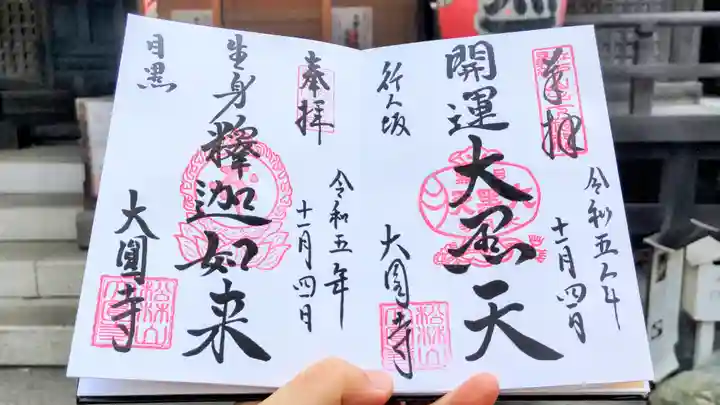 奉拝
令和五年
十一月四日
開運大黒天
行人坂
大圓寺
奉拝
令和五年
十一月四日
生身釋迦如来
目黒
大圓寺